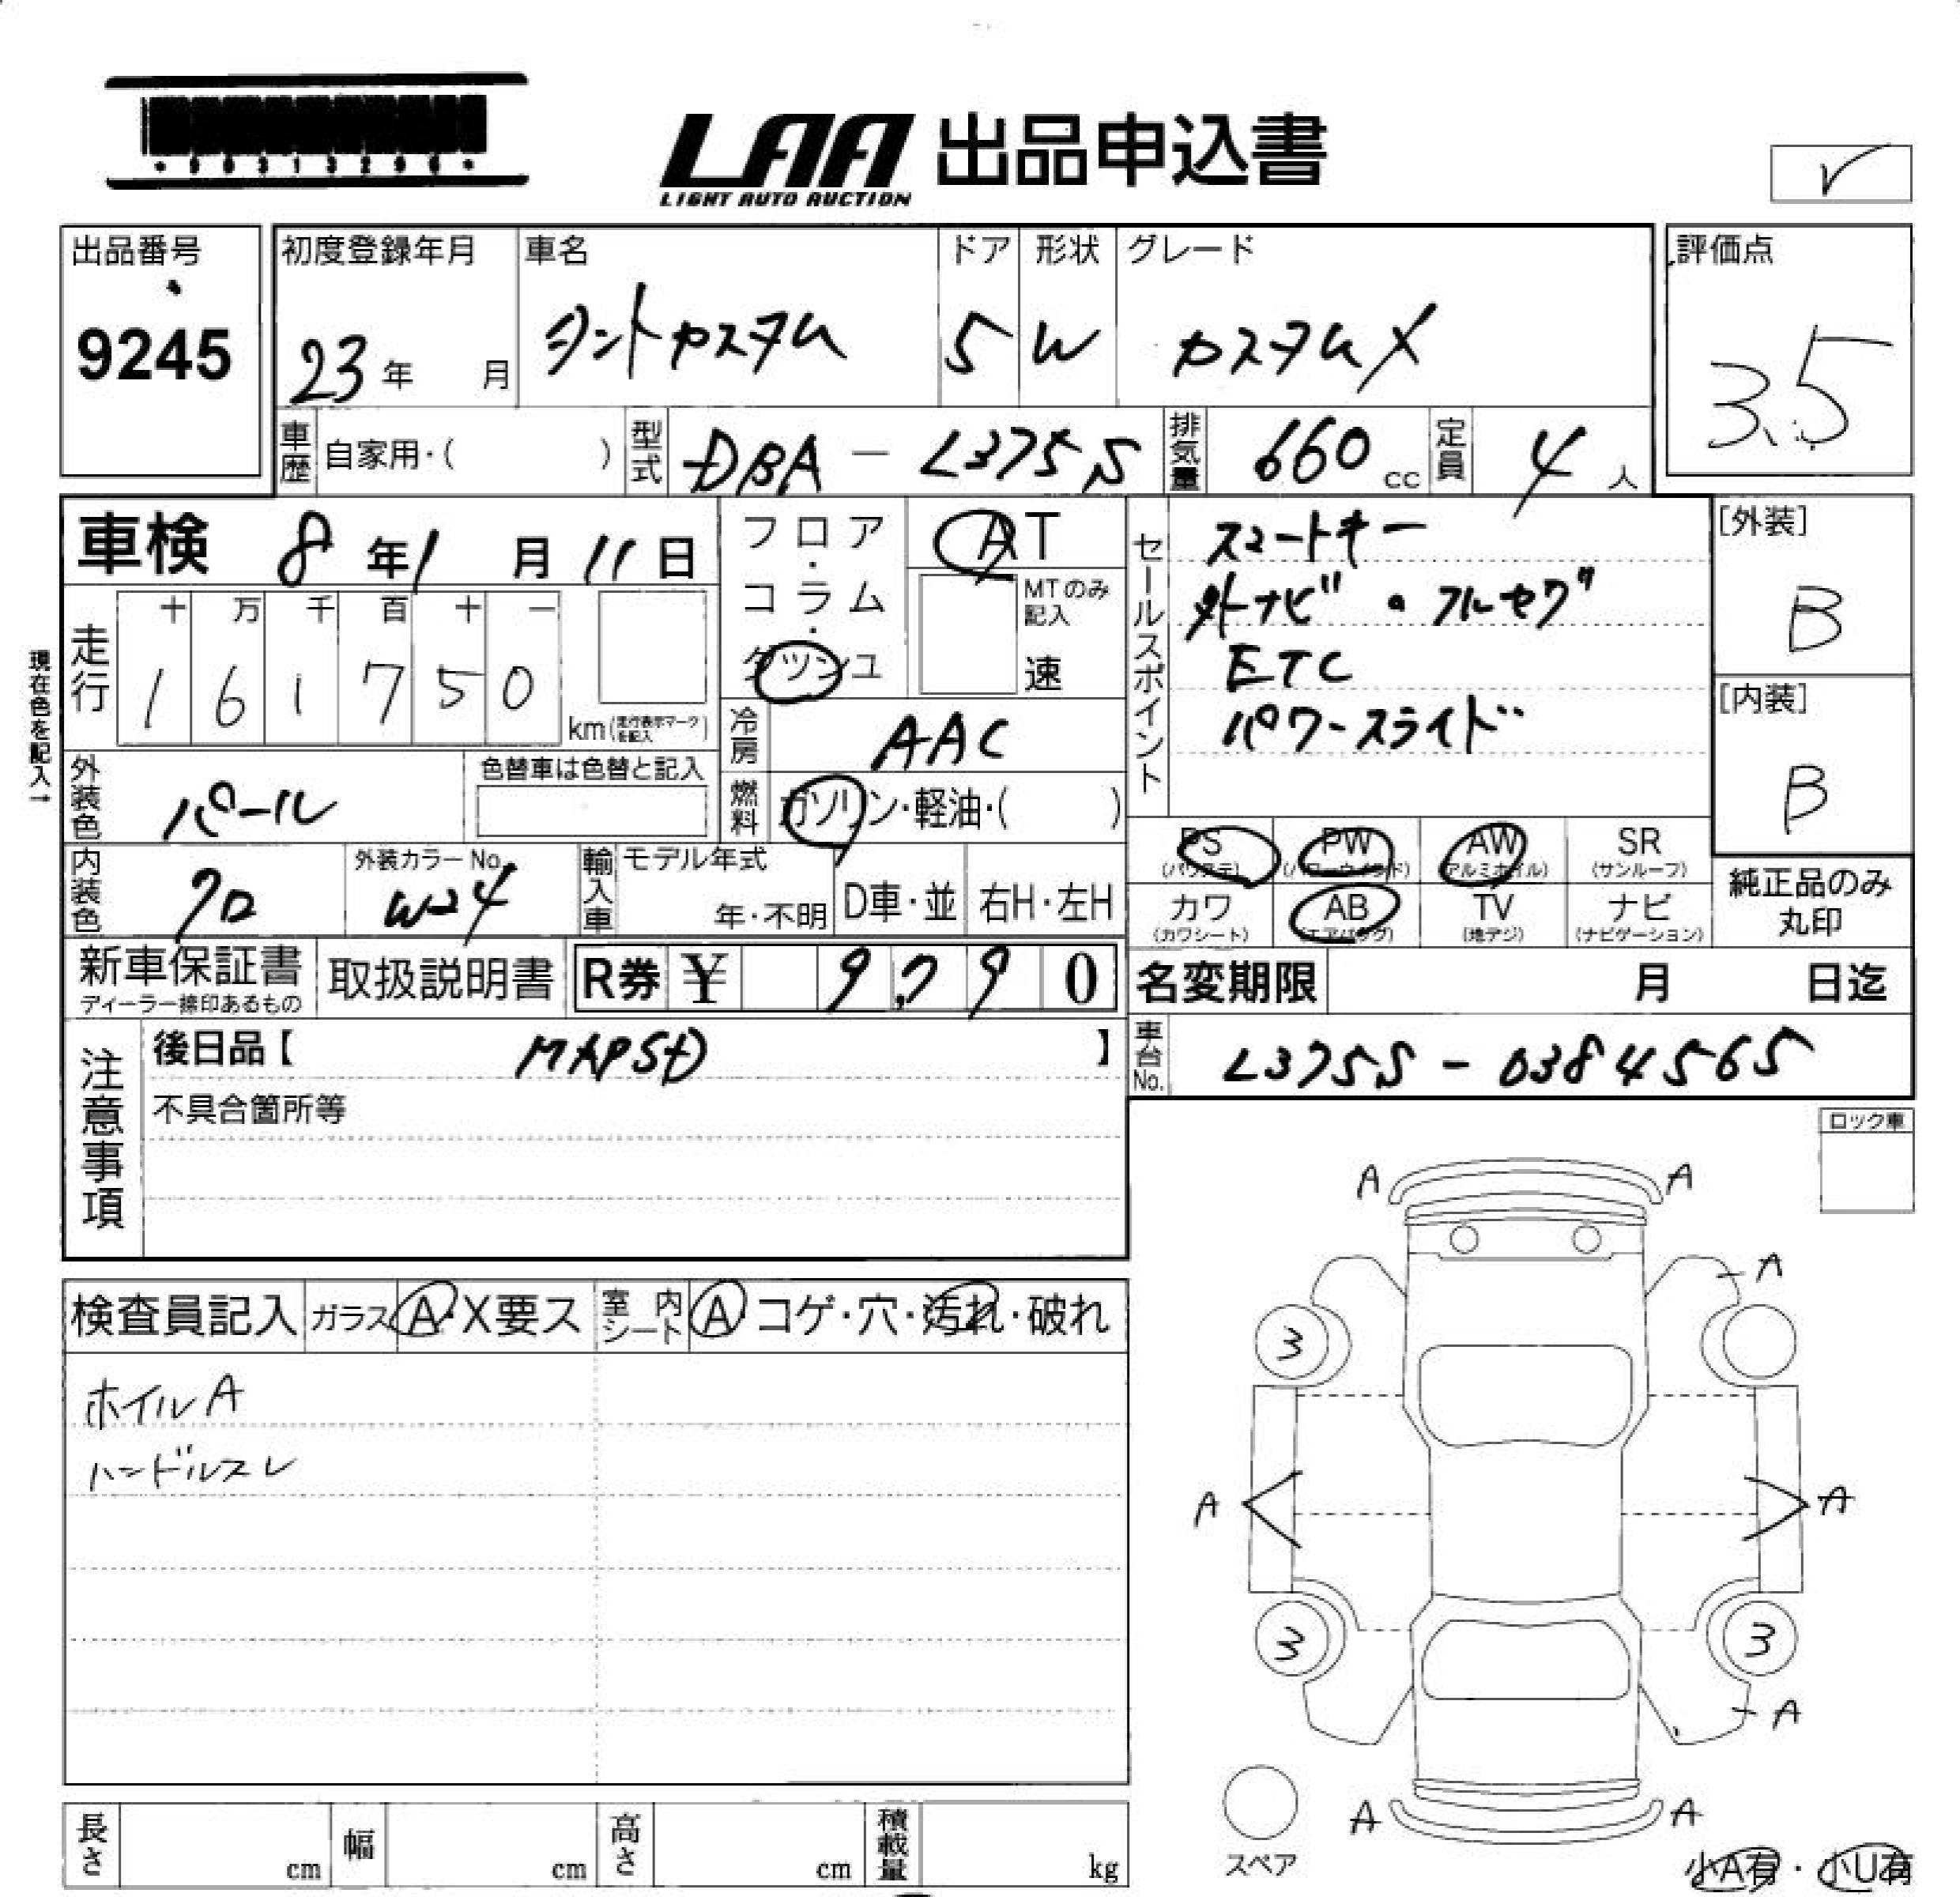 *90313296*
LAA 出品申込書
LIGHT AUTO AUCTION
✓
出品番号 初度登録年月 車名 ドア 形状 グレード 評価点
9245 23年 月 タントカスタム 5 W カスタムX 3.5
車歴 自家用・( ) 型式 DBA - L375S 排気量 660 cc 定員 4 人
車検 8年1月11日
フロア・コラム・ダッシュ
AT
MTのみ記入
速
セールスポイント
スマートキー
外ナビ・フルセグ
ETC
パワースライド
[外装]
B
[内装]
B
現在色を記入→
走行 十 万 千 百 十 一
1 6 1 7 5 0
km(走行表示マークを記入)
冷房 AAC
外装色 パール 色替車は色替と記入
燃料 ガソリン・軽油・( )
PS PW AW SR
(パワステ) (パワーウィンド) (アルミホイル) (サンルーフ)
カワ AB TV ナビ
(カワシート) (エアバッグ) (地デジ) (ナビゲーション)
純正品のみ
丸印
内装色 クロ 外装カラーNo. W24 輸入車 モデル年式 年・不明 D車・並 右H・左H
新車保証書 取扱説明書 R券 ¥ 9,790
ディーラー捺印あるもの
名変期限 月 日迄
後日品【 MAPSD 】
車台No. L375S - 0384565
注意事項
不具合箇所等
ロック車
A A
A
検査員記入 ガラス A・X要ス 室内シート A コゲ・穴・汚れ・破れ
3
ホイルA
ハンドルスレ
A A
3 3
A
A A
長さ cm 幅 cm 高さ cm 積載量 kg
スペア
小A有・小U有